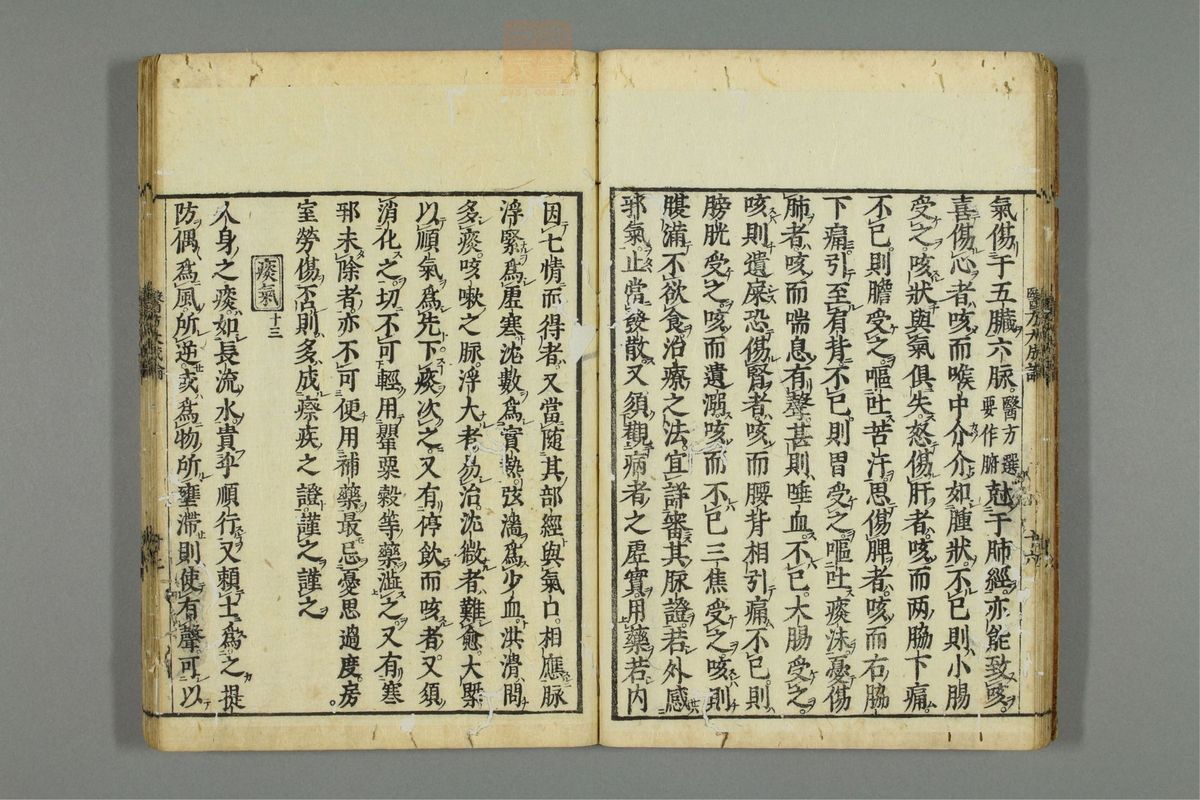 氣傷于五臟六脉醫方選要作腑尅于肺經亦能致咳
喜傷心者咳而喉中介介如腫狀不已則小腸
受之咳狀與氣俱失怒傷肝者咳而兩脇下痛
不已則膽受之嘔吐苦汁思傷脾者咳而右脇
下痛引至肩背不已則胃受之嘔吐痰沫憂傷
肺者咳而喘息有聲甚則唾血不已大腸受之
咳則遺屎恐傷腎者咳而腰背相引痛不已則
膀胱受之咳而遺溺咳而不已三焦受之咳則
腹滿不欲食治療之法宜詳審其脉證若外感
邪氣止當發散又須觀病者之虛實用藥若内
因七情而得者又當隨其部經與氣口相應脉
浮緊爲虛寒沈數爲實熱弦濇爲少血洪滑
多痰咳嗽之脉浮大者易治沈微者難愈大槩
以順氣爲先下痰次之又有停飲而咳者又須
消化之切不可輕用罌粟殻等藥澁之又有寒
邪未除者亦不可便用補藥最忌憂思過度房
室勞傷否則多成瘵疾之證謹之謹之
痰氣 十三
人身之痰如長流水貴乎順行又賴土爲之提
防偶爲風所逆或爲物所壅滯則使有聲可以